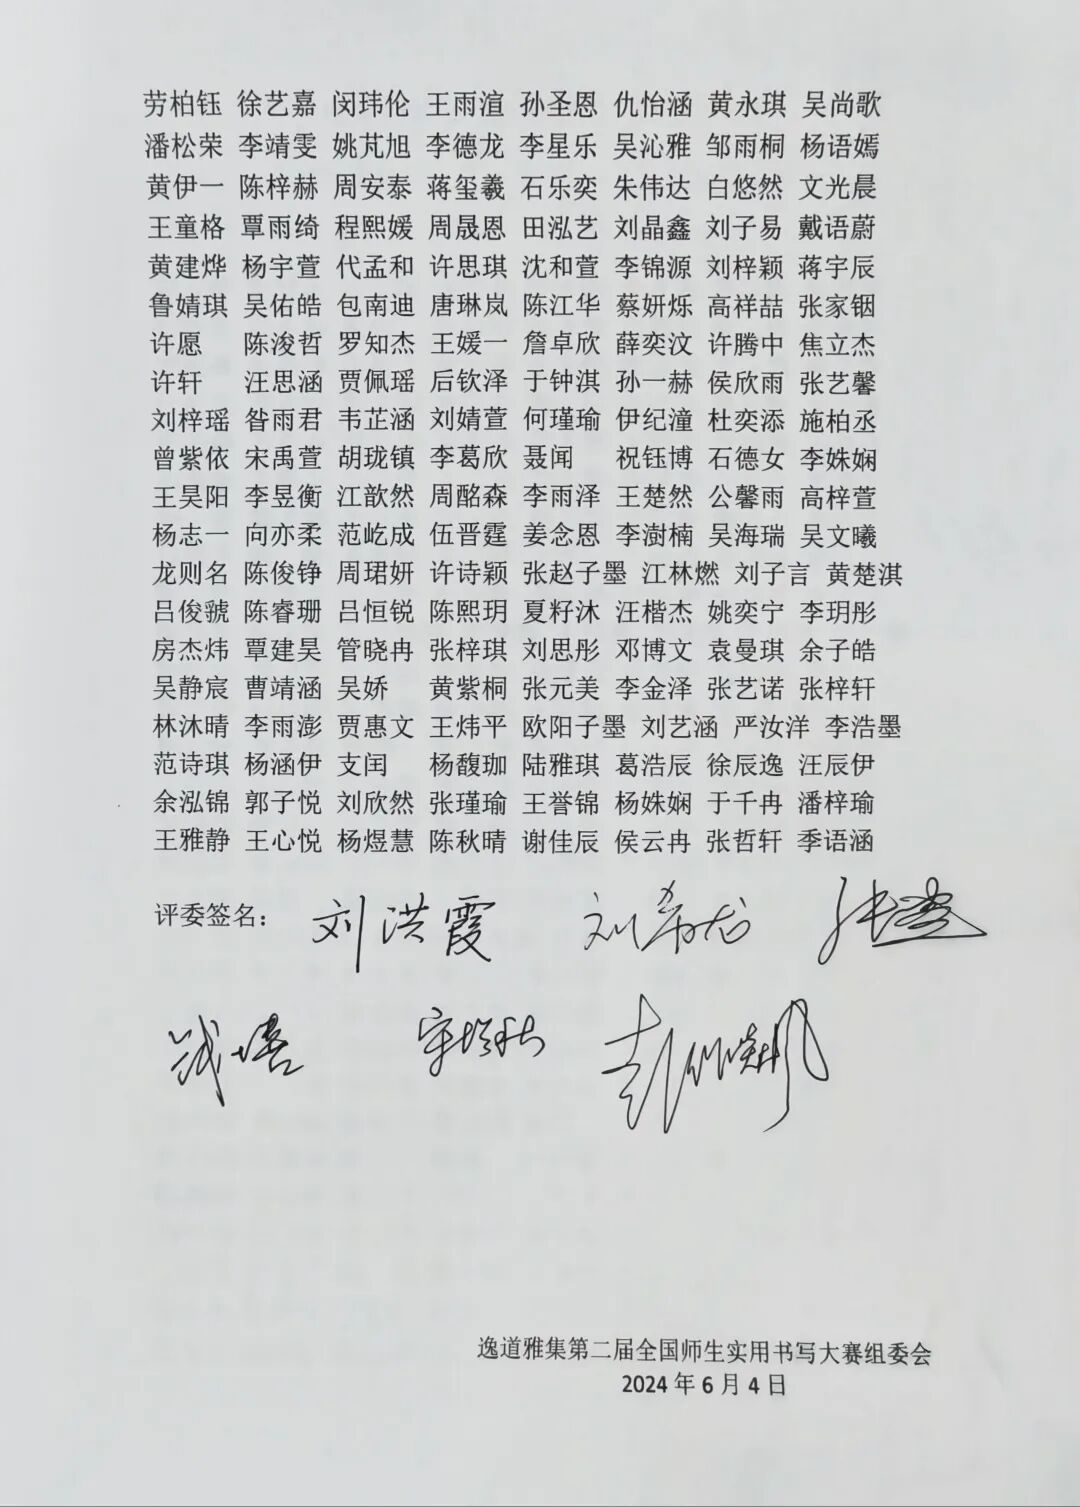 劳柏钰 徐艺嘉 闵玮伦 王雨渲 孙圣恩 仇怡涵 黄永琪 吴尚歌
潘松荣 李靖雯 姚芃旭 李德龙 李星乐 吴沁雅 邹雨桐 杨语嫣
黄伊一 陈梓赫 周安泰 蒋玺羲 石乐奕 朱伟达 白悠然 文光晨
王童格 覃雨绮 程熙媛 周晟恩 田泓艺 刘晶鑫 刘子易 戴语蔚
黄建烨 杨宇萱 代孟和 许思琪 沈和萱 李锦源 刘梓颖 蒋宇辰
鲁婧琪 吴佑皓 包南迪 唐琳岚 陈江华 蔡妍烁 高祥喆 张家铟
许愿 陈浚哲 罗知杰 王媛一 詹卓欣 薛奕汶 许腾中 焦立杰
许轩 汪思涵 贾佩瑶 后钦泽 于钟淇 孙一赫 侯欣雨 张艺馨
刘梓瑶 昝雨君 韦芷涵 刘婧萱 何瑾瑜 伊纪潼 杜奕添 施柏丞
曾紫依 宋禹萱 胡珑镇 李葛欣 聂闻 祝钰博 石德女 李姝娴
王昊阳 李昱衡 江歆然 周酩森 李雨泽 王楚然 公馨雨 高梓萱
杨志一 向亦柔 范屹成 伍晋霆 姜念恩 李澍楠 吴海瑞 吴文曦
龙则名 陈俊铮 周珺妍 许诗颖 张赵子墨 江林燃 刘子言 黄楚淇
吕俊虢 陈睿珊 吕恒锐 陈熙玥 夏籽沐 汪楷杰 姚奕宁 李玥彤
房杰炜 覃建昊 管晓冉 张梓琪 刘思彤 邓博文 袁曼琪 余子皓
吴静宸 曹靖涵 吴娇 黄紫桐 张元美 李金泽 张艺诺 张梓轩
林沐晴 李雨澎 贾惠文 王炜平 欧阳子墨 刘艺涵 严汝洋 李浩墨
范诗琪 杨涵伊 支闰 杨馥珈 陆雅琪 葛浩辰 徐辰逸 汪辰伊
余泓锦 郭子悦 刘欣然 张瑾瑜 王誉锦 杨姝娴 于千冉 潘梓瑜
王雅静 王心悦 杨煜慧 陈秋晴 谢佳辰 侯云冉 张哲轩 季语涵
评委签名： 刘洪霞 刘希龙
逸道雅集第二届全国师生实用书写大赛组委会
2024 年 6 月 4 日